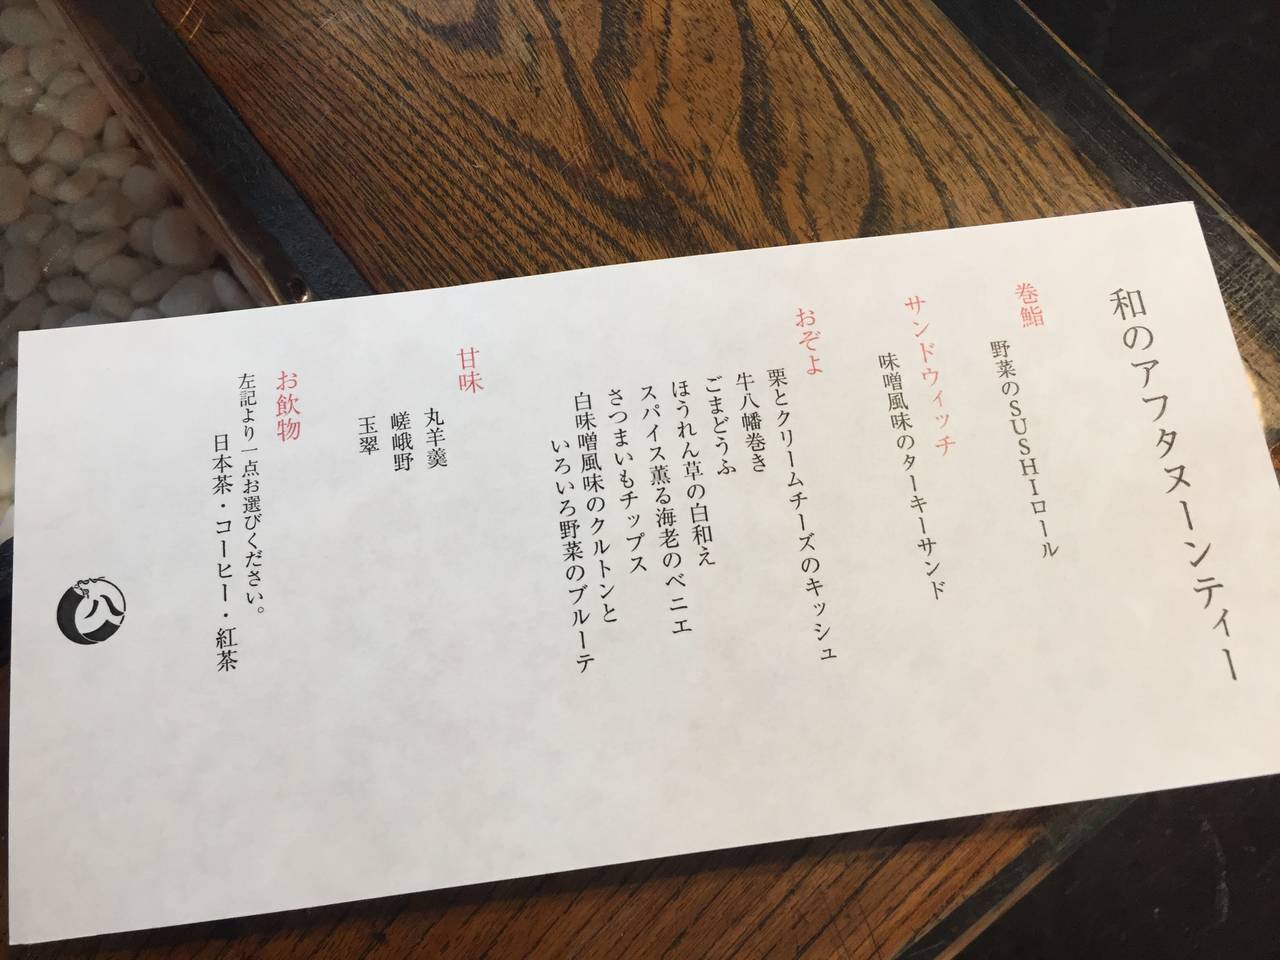 和のアフタヌーンティー
巻鮨
野菜のSUSHIロール
サンドウィッチ
味噌風味のターキーサンド
おぞよ
栗とクリームチーズのキッシュ
牛八幡巻き
ごまどうふ
ほうれん草の白和え
スパイス薫る海老のベニエ
さつまいもチップス
白味噌風味のクルトンと
いろいろ野菜のブルーテ
甘味
丸羊羹
嵯峨野
玉翠
お飲物
左記より一点お選びください。
日本茶・コーヒー・紅茶
八